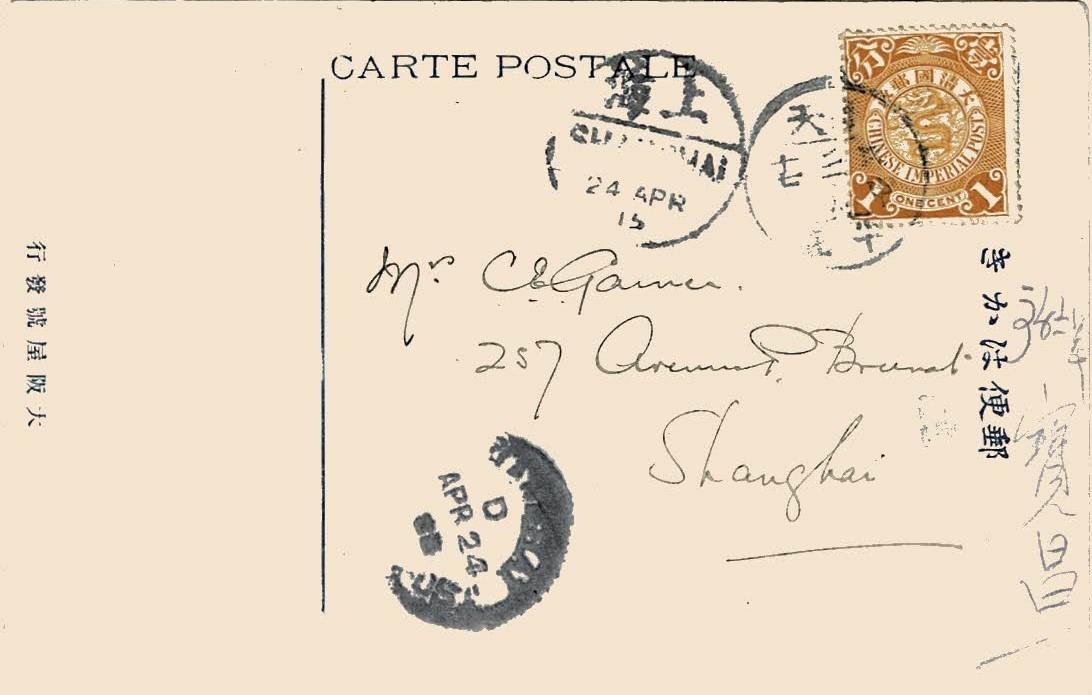 CARTE POSTALE
大清國郵政
壹分
CHINESE IMPERIAL POST
1 ONE CENT 1
上海
SHANGHAI
24 APR
15
天
七
Mrs C.E. Garner.
257 Avenue P. Brunat
Shanghai
郵便は加き
寶昌
D
APR 24
大阪屋號發行